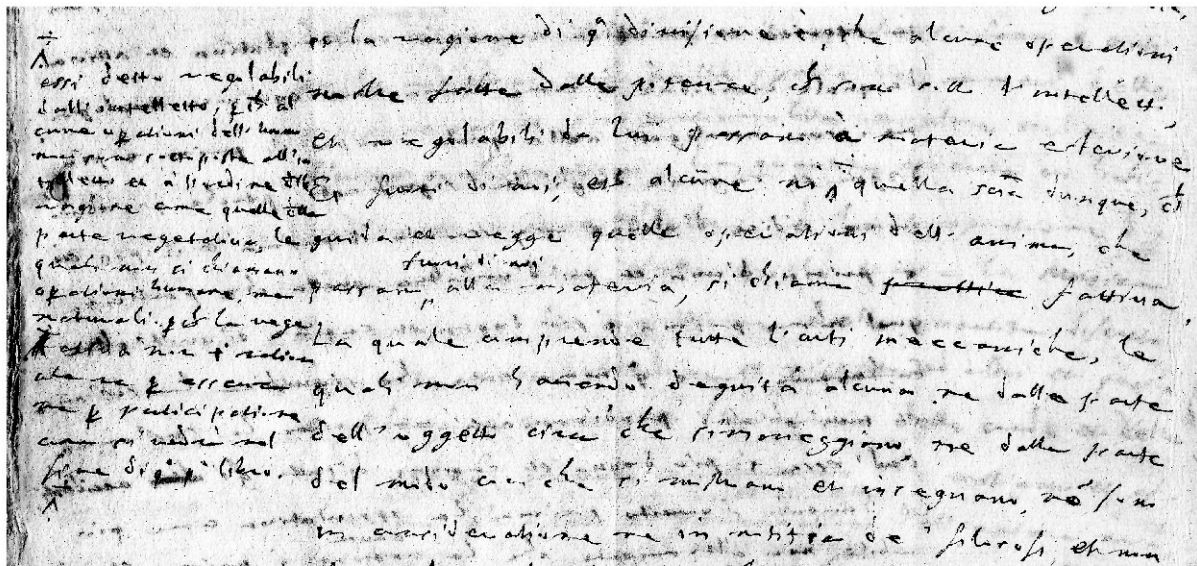 essi detto regolabili
dall'intelletto, p che al
cune opationi dell'huomo
non sono sottoposte all'in
telletto et à l'ordine della
ragione come quelle della
parte vegetativa, le
quali non si chiamano
opationi humane, ma
naturali. p che la vege
tativa non è ratio
nale ne p essenza
ne p participatione
come si vedrà nel
fine di qo po libro.
et la ragione di qa divisione è, che alcune operationi
nostre fatte dalle potenze, che sono
et regolabili da lui passano à materia esteriore
fuori di noi, et alcune nò quella scia dunque, che
guida et regge quelle operationi dell'anima, che
fuori di noi
passano alla materia, si chiama prattica fattiva
La quale comprende tutte l'arti meccaniche, le
quali non havendo degnità alcuna ne dalla parte
dell'oggetto circa che, ne dalla parte
del modo con che si mostrano et insegnano, nè sono
in consideratione ne in notitia de' filosofi, et non